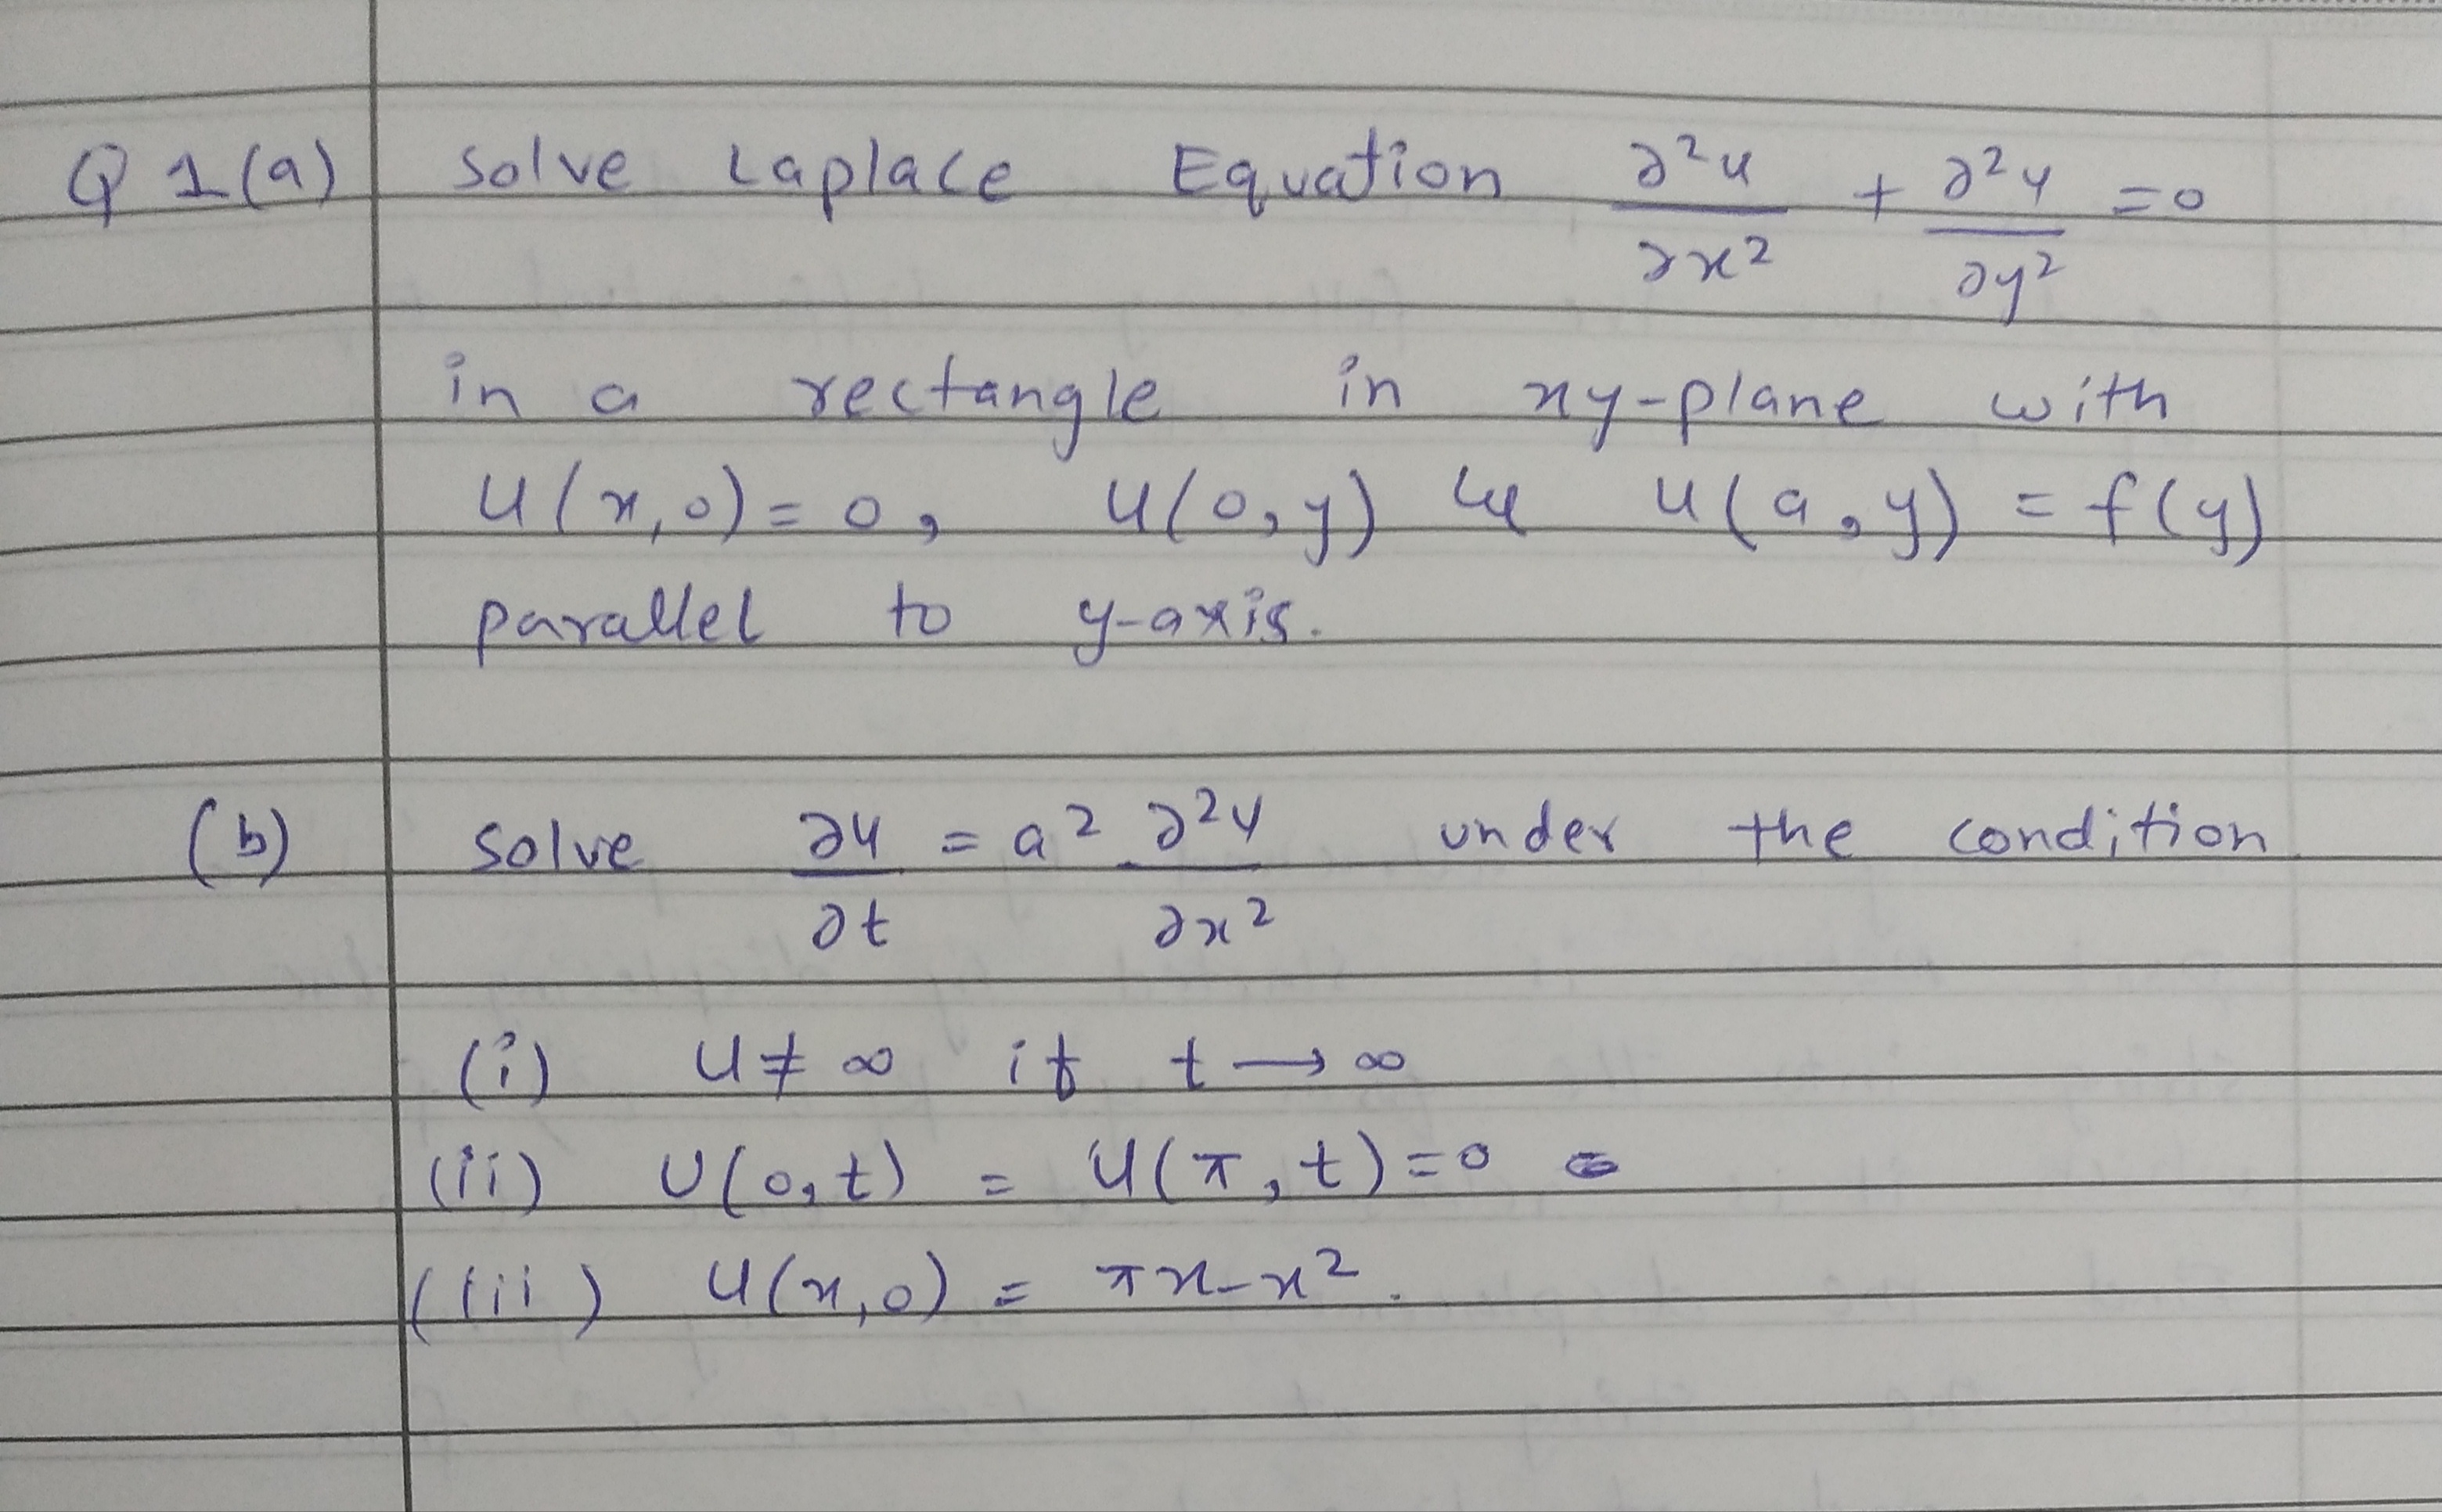 Q 1(a) Solve Laplace Equation ∂²u/∂x² + ∂²u/∂y² =0
in a rectangle in xy-plane with
u(x,0)=0, u(0,y) u(a,y) = f(y)
parallel to y-axis.
(b) Solve ∂u/∂t = a² ∂²u/∂x² under the condition
(i) U≠∞ if t→∞
(ii) U(0,t) = U(π,t)=0
(iii) U(x,0) = πx-x².